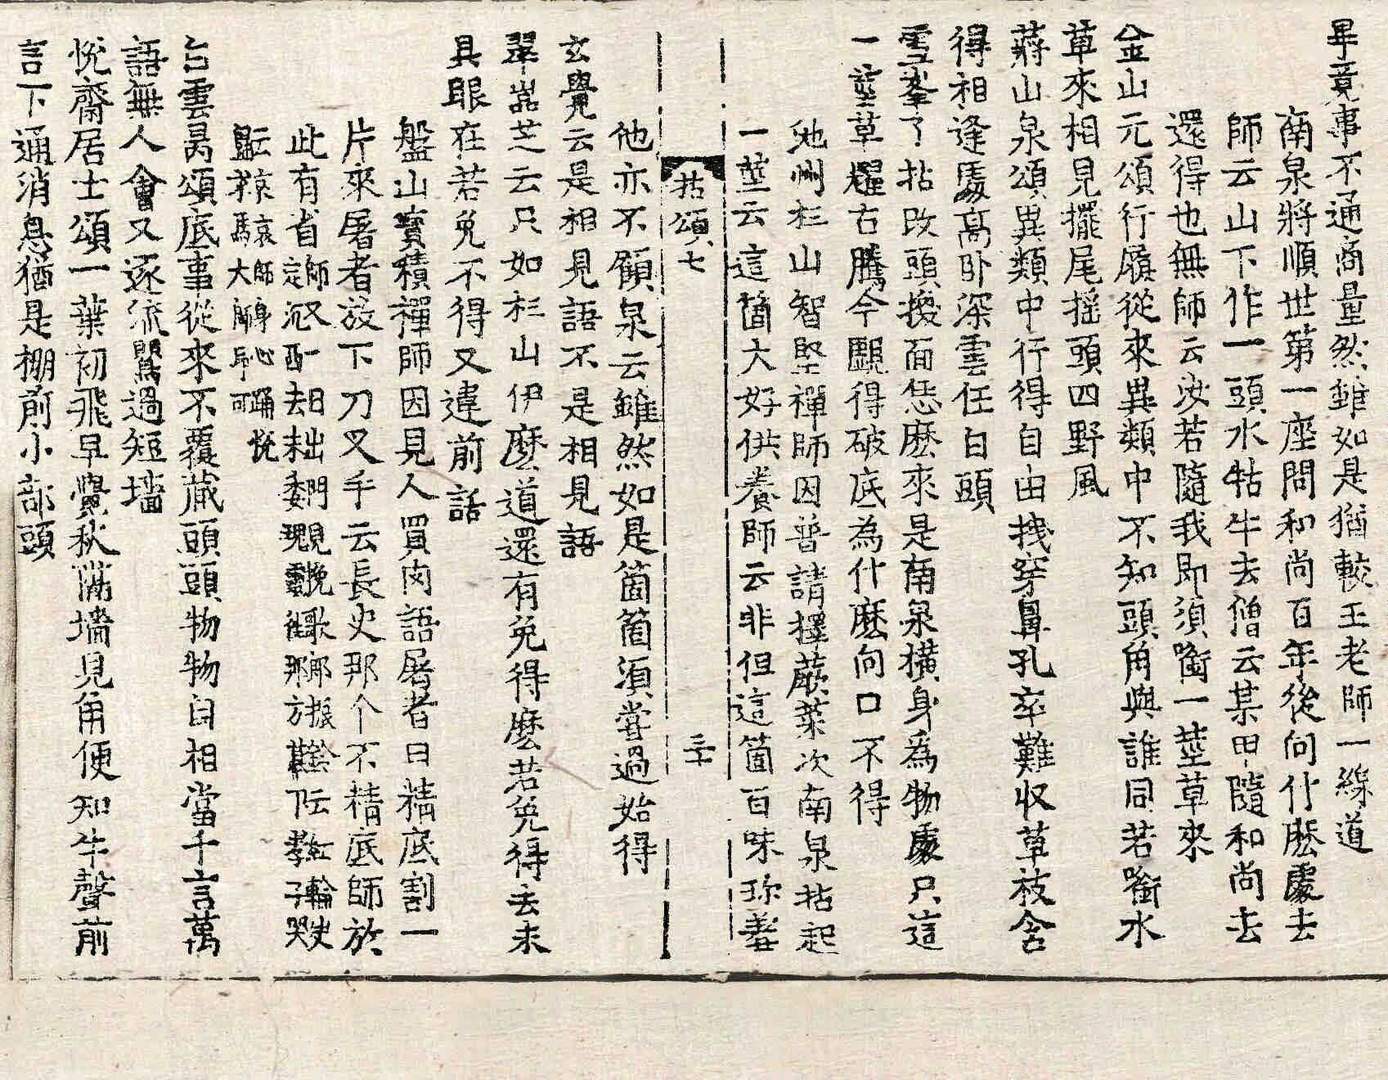 畢竟事不通商量然雖如是猶較王老師一線道
南泉將順世第一座問和尚百年後向什麽處去
師云山下作一頭水牯牛去僧云某甲隨和尚去
還得也無師云汝若隨我即須銜一莖草來
金山元頌行履從來異類中不知頭角與誰同若銜水
草來相見擺尾搖頭四野風
蔣山泉頌異類中行得自由拽穿鼻孔卒難収草枝含
得相逢處高卧深雲任白頭
雪峯了拈改頭換面恁麽來是南泉橫身為物處只這
一莖草耀古騰今覷得破底為什麽向口不得
池州杉山智堅禪師因普請擇蕨菜次南泉拈起
一莖云這箇大好供養師云非但這箇百味珍羞
拈頌七
三十
他亦不顧泉云雖然如是箇箇須嘗過始得
玄覺云是相見語不是相見語
翠嵓芝云只如杉山伊麽道還有免得麽若免得去未
具眼在若免不得又違前話
盤山寳積禪師因見人買肉語屠者曰精底割一
片來屠者放下刀叉手云長史那个不精底師於
此有省
師又一日出門見挽歌郞振鈴云紅輪
定沉西去未委魂靈徃那方幕下孝子哭
哀哀師身心踊悅
馬大師印可
白雲昺頌底事從來不覆藏頭頭物物自相當千言萬
語無人會又逐流鸎過短墻
悅齋居士頌一葉初飛早覺秋隔墻見角便知牛聲前
言下通消息猶是棚前小部頭